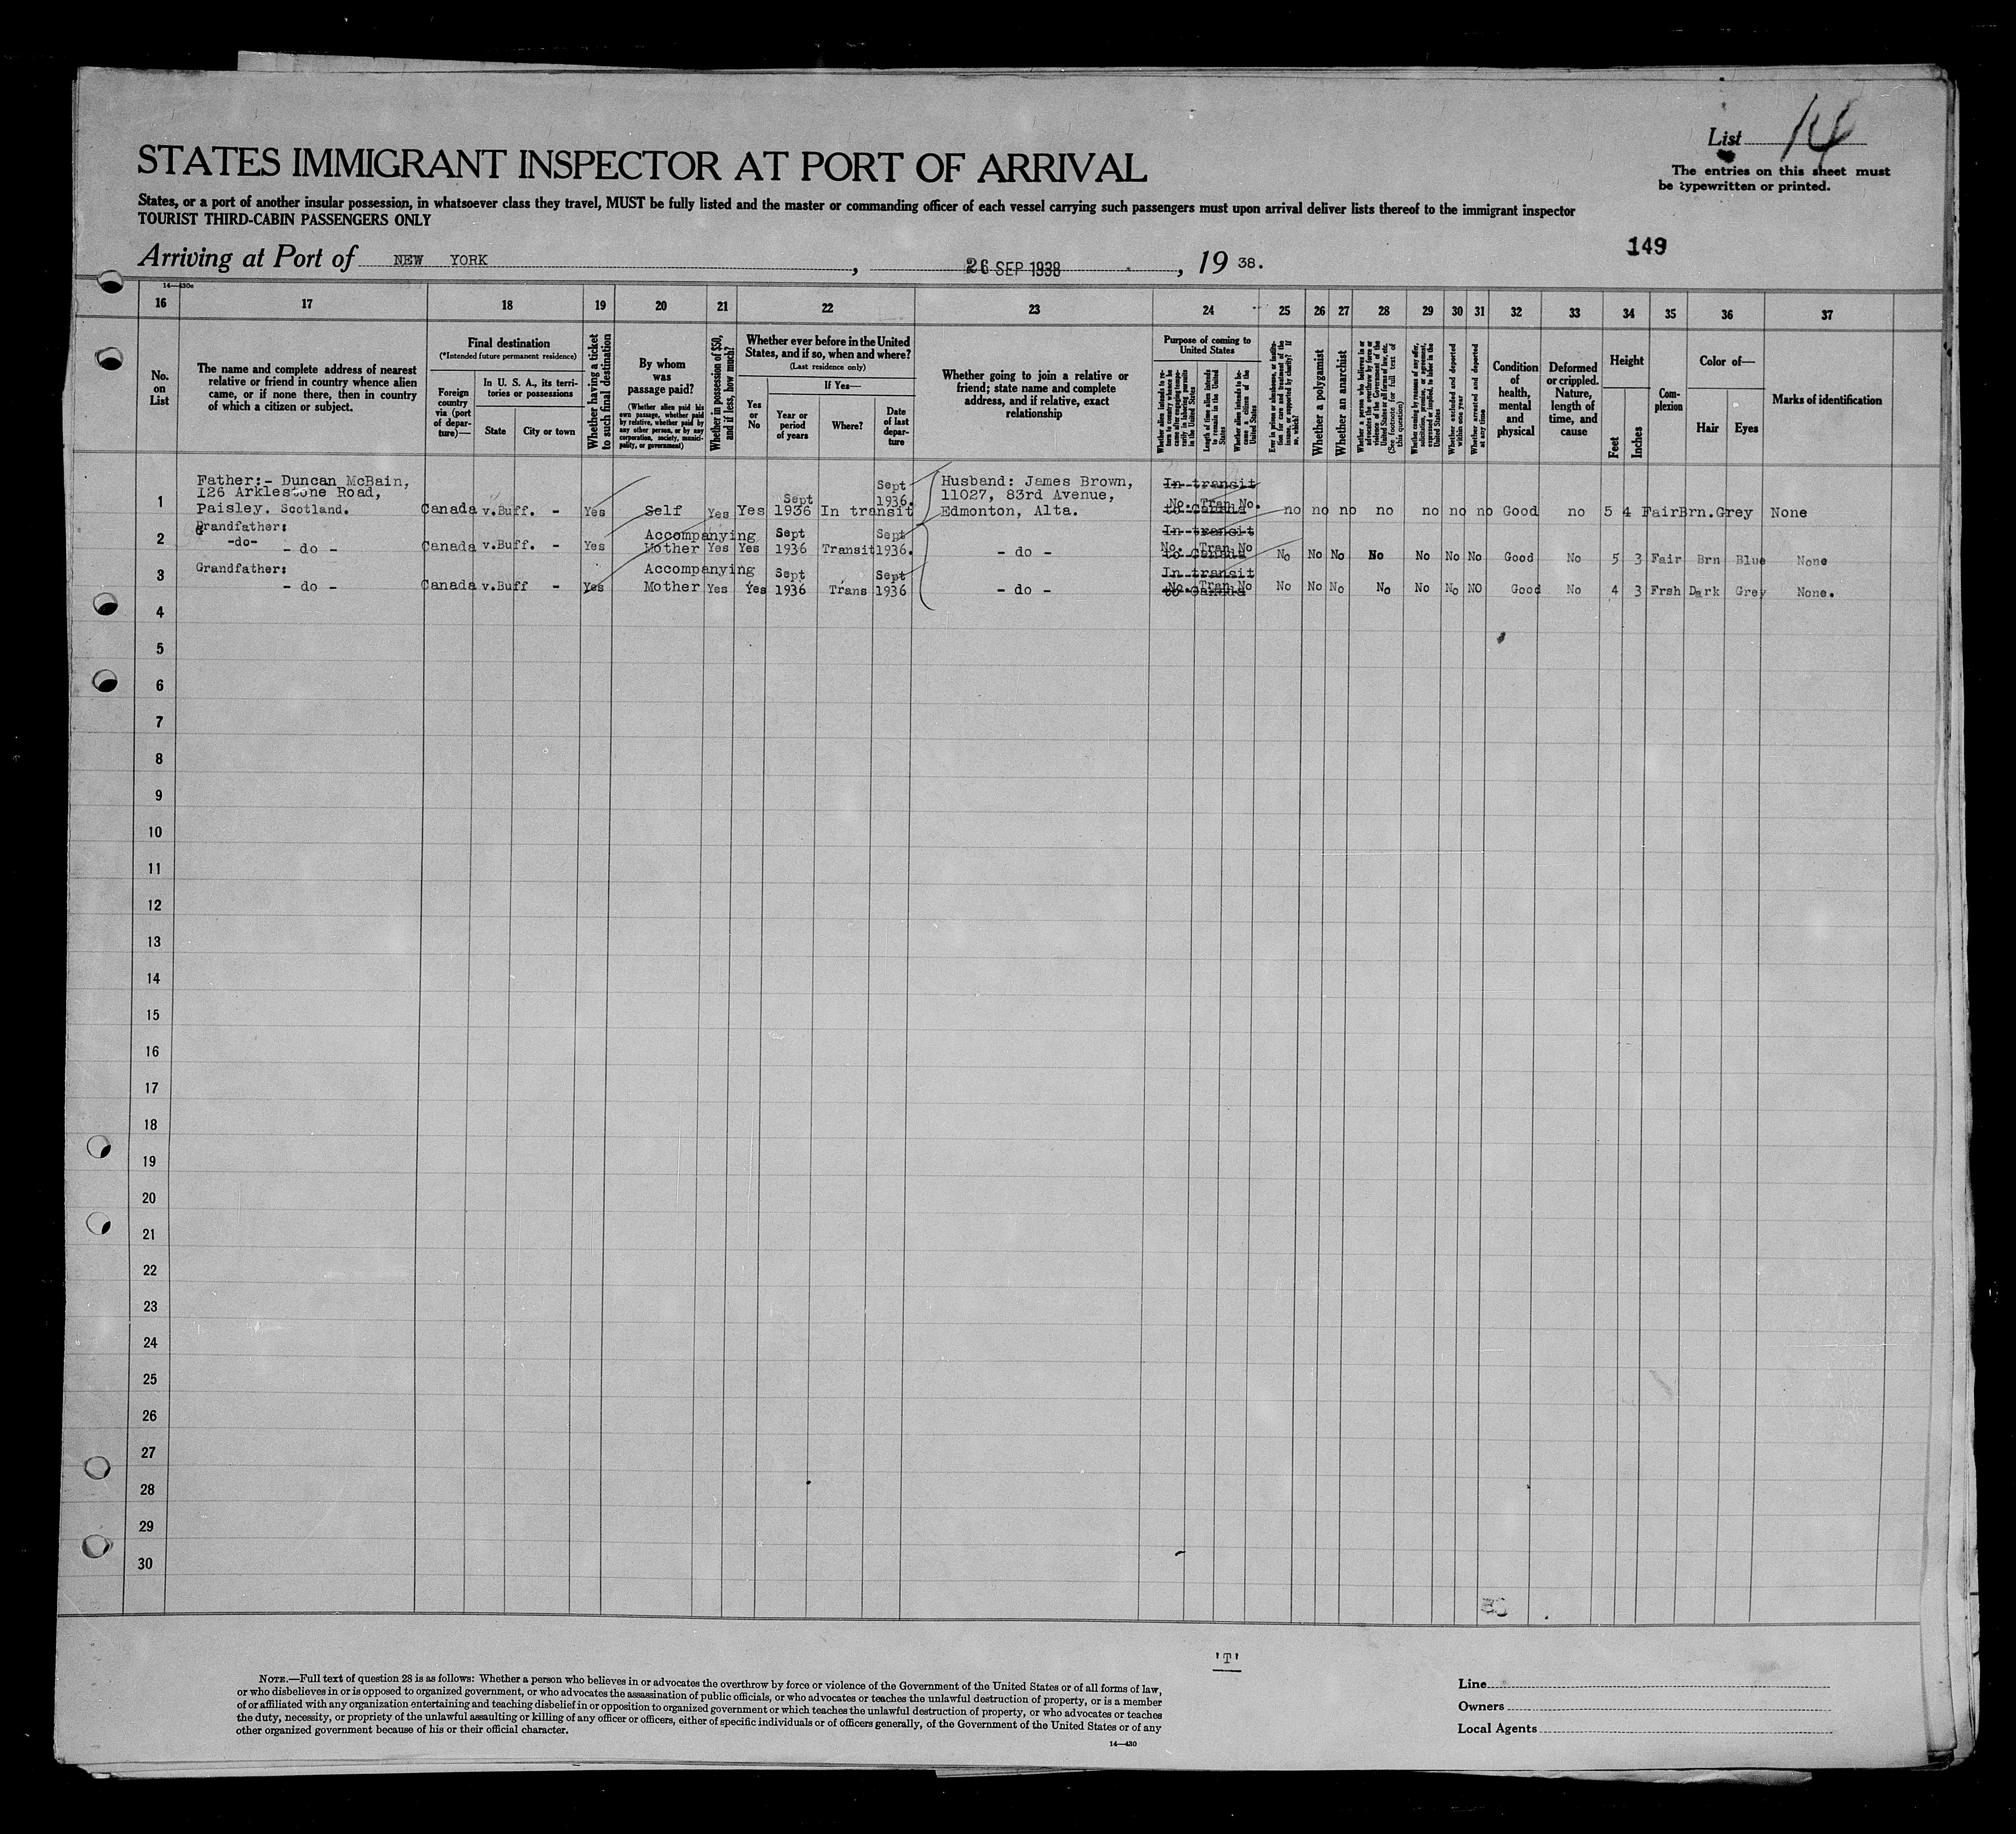 List 14
The entries on this sheet must
be typewritten or printed.
STATES IMMIGRANT INSPECTOR AT PORT OF ARRIVAL
States, or a port of another insular possession, in whatsoever class they travel, MUST be fully listed and the master or commanding officer of each vessel carrying such passengers must upon arrival deliver lists thereof to the immigrant inspector
TOURIST THIRD-CABIN PASSENGERS ONLY
149
Arriving at Port of NEW YORK, 26 SEP 1938, 19 38.
14—430c
16 17 18 19 20 21 22 23 24 25 26 27 28 29 30 31 32 33 34 35 36 37
No.
on
List
The name and complete address of nearest
relative or friend in country whence alien
came, or if none there, then in country
of which a citizen or subject.
Final destination
(*Intended future permanent residence)
Foreign
country
via (port
of depar-
ture)—
In U. S. A., its terri-
tories or possessions
State
City or town
Whether having a ticket
to such final destination
By whom
was
passage paid?
(Whether alien paid his
own passage, whether paid
by relative, whether paid by
any other person, or by any
corporation, society, munici-
pality, or government)
Whether in possession of $50,
and if less, how much?
Whether ever before in the United
States, and if so, when and where?
(Last residence only)
Yes
or
No
If Yes—
Year or
period
of years
Where?
Date
of last
depar-
ture
Whether going to join a relative or
friend; state name and complete
address, and if relative, exact
relationship
Purpose of coming to
United States
Whether alien intends to re-
turn to country whence he
came after engaging tempo-
rarily in laboring pursuits
in the United States
Length of time alien intends
to remain in the United
States
Whether alien intends to be-
come a citizen of the
United States
Ever in prison or almshouse, or institu-
tion for care and treatment of the
insane, or supported by charity? If
so, which?
Whether a polygamist
Whether an anarchist
Whether a person who believes in or
advocates the overthrow by force or
violence of the Government of the
United States or all forms of law, etc.
(See footnote for full text of
this question)
Whether coming by reason of any offer,
solicitation, promise, or agreement,
expressed or implied, to labor in the
United States
Whether excluded and deported
within one year
Whether arrested and deported
at any time
Condition
of
health,
mental
and
physical
Deformed
or crippled.
Nature,
length of
time, and
cause
Height
Feet
Inches
Com-
plexion
Color of—
Hair
Eyes
Marks of identification
1 Father:- Duncan McBain,
126 Arklestone Road,
Paisley. Scotland. Canada v.Buff. - Yes Self Yes Yes Sept 1936 In transit Sept 1936. Husband: James Brown,
11027, 83rd Avenue,
Edmonton, Alta. In transit to Canada No. Tran No. no no no no no no no Good no 5 4 Fair Brn. Grey None
2 Grandfather:
-do- - do - Canada v.Buff. - Yes Accompanying Mother Yes Yes Sept 1936 Transit Sept 1936. - do - In transit to Canada No. Tran No No No No No No No No Good No 5 3 Fair Brn Blue None
3 Grandfather:
- do - Canada v.Buff - Yes Accompanying Mother Yes Yes Sept 1936 Trans Sept 1936 - do - In transit to Canada No. Tran No No No No No No No NO Good No 4 3 Frsh Dark Grey None.
4
5
6
7
8
9
10
11
12
13
14
15
16
17
18
19
20
21
22
23
24
25
26
27
28
29
30
'T'
NOTE.—Full text of question 28 is as follows: Whether a person who believes in or advocates the overthrow by force or violence of the Government of the United States or of all forms of law,
or who disbelieves in or is opposed to organized government, or who advocates the assassination of public officials, or who advocates or teaches the unlawful destruction of property, or is a member
of or affiliated with any organization entertaining and teaching disbelief in or opposition to organized government or which teaches the unlawful destruction of property, or who advocates or teaches
the duty, necessity, or propriety of the unlawful assaulting or killing of any officer or officers, either of specific individuals or of officers generally, of the Government of the United States or of any
other organized government because of his or their official character.
14—430
Line
Owners
Local Agents